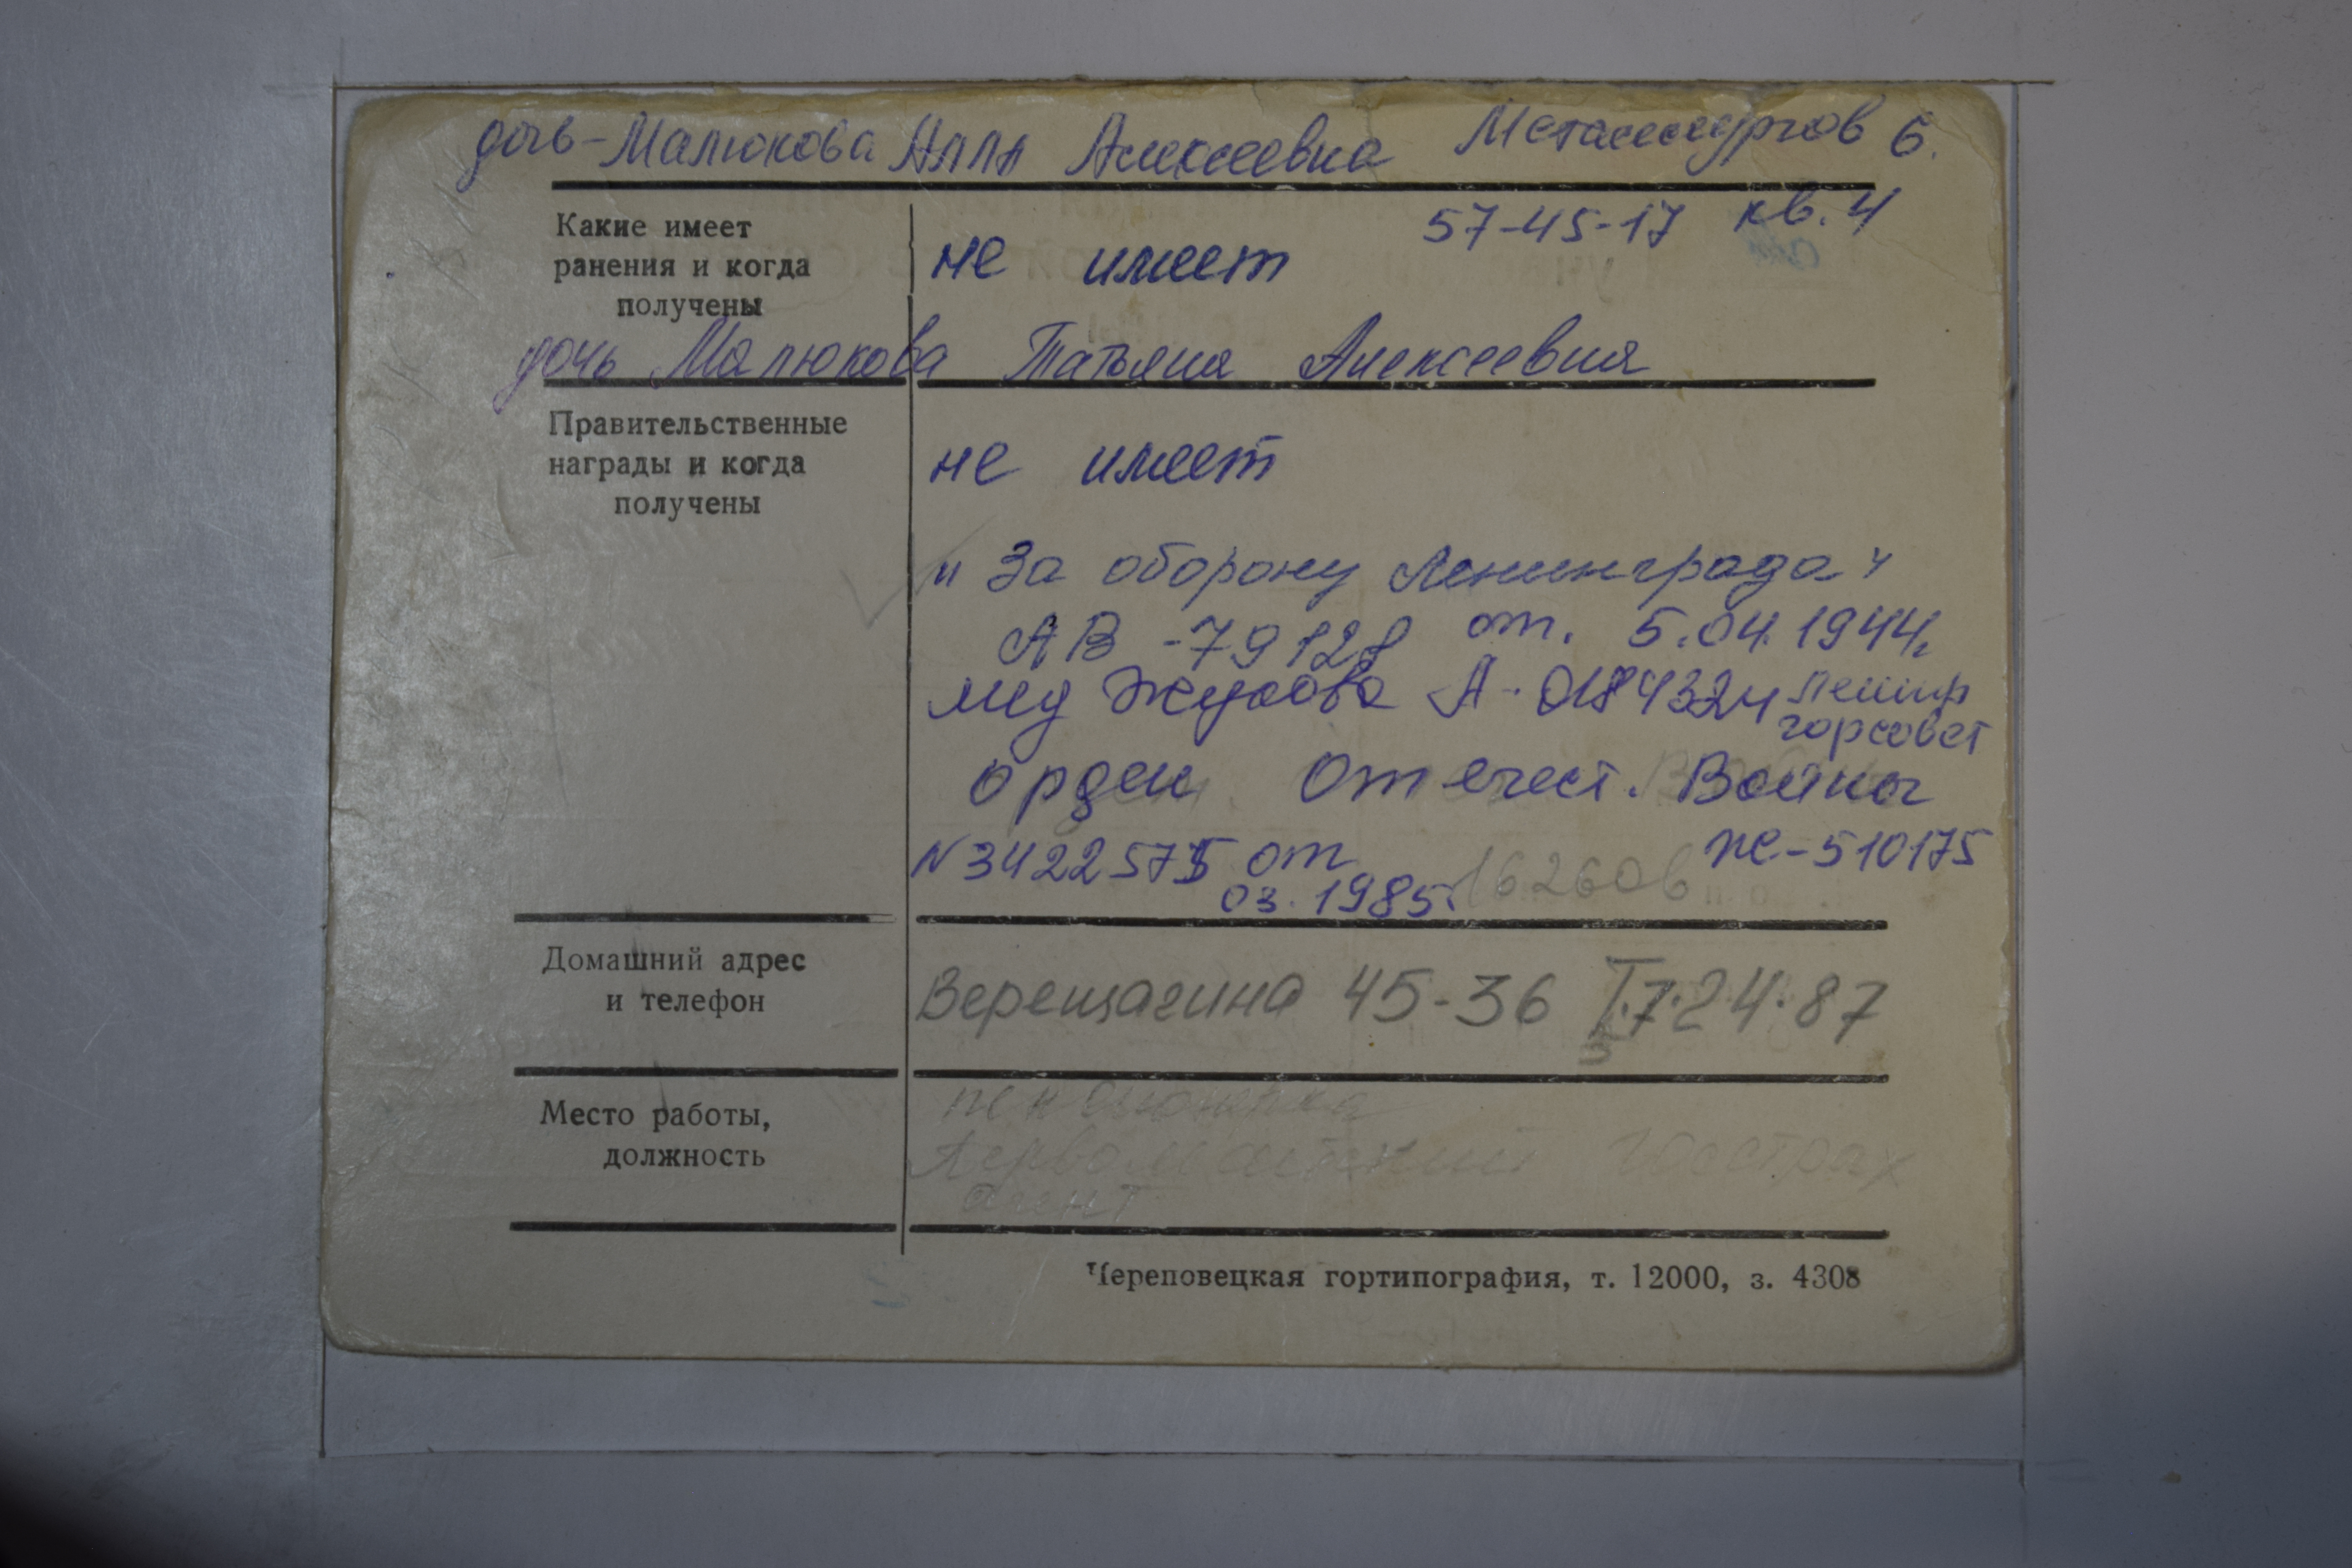 дочь-Малюкова Алла Алексеевна Металлургов 6.
57-45-17 кв. 4
Какие имеет
ранения и когда
получены
не имеет
дочь Малюкова Татьяна Алексеевна
Правительственные
награды и когда
получены
не имеет
"За оборону Ленинграда"
АВ -79128 от. 5.04.1944г.
мед Жукова А- 0184324 Ленинр
горсовет
орден Отечест. Войны
N 3422575 от ЖЕ-510175
03. 1985г. 162606
Домашний адрес
и телефон
Верещагина 45-36 Т.7·24·87
Место работы,
должность
пенсионерка
Первомайский Госстрах
агент
Череповецкая гортипография, т. 12000, з. 4308